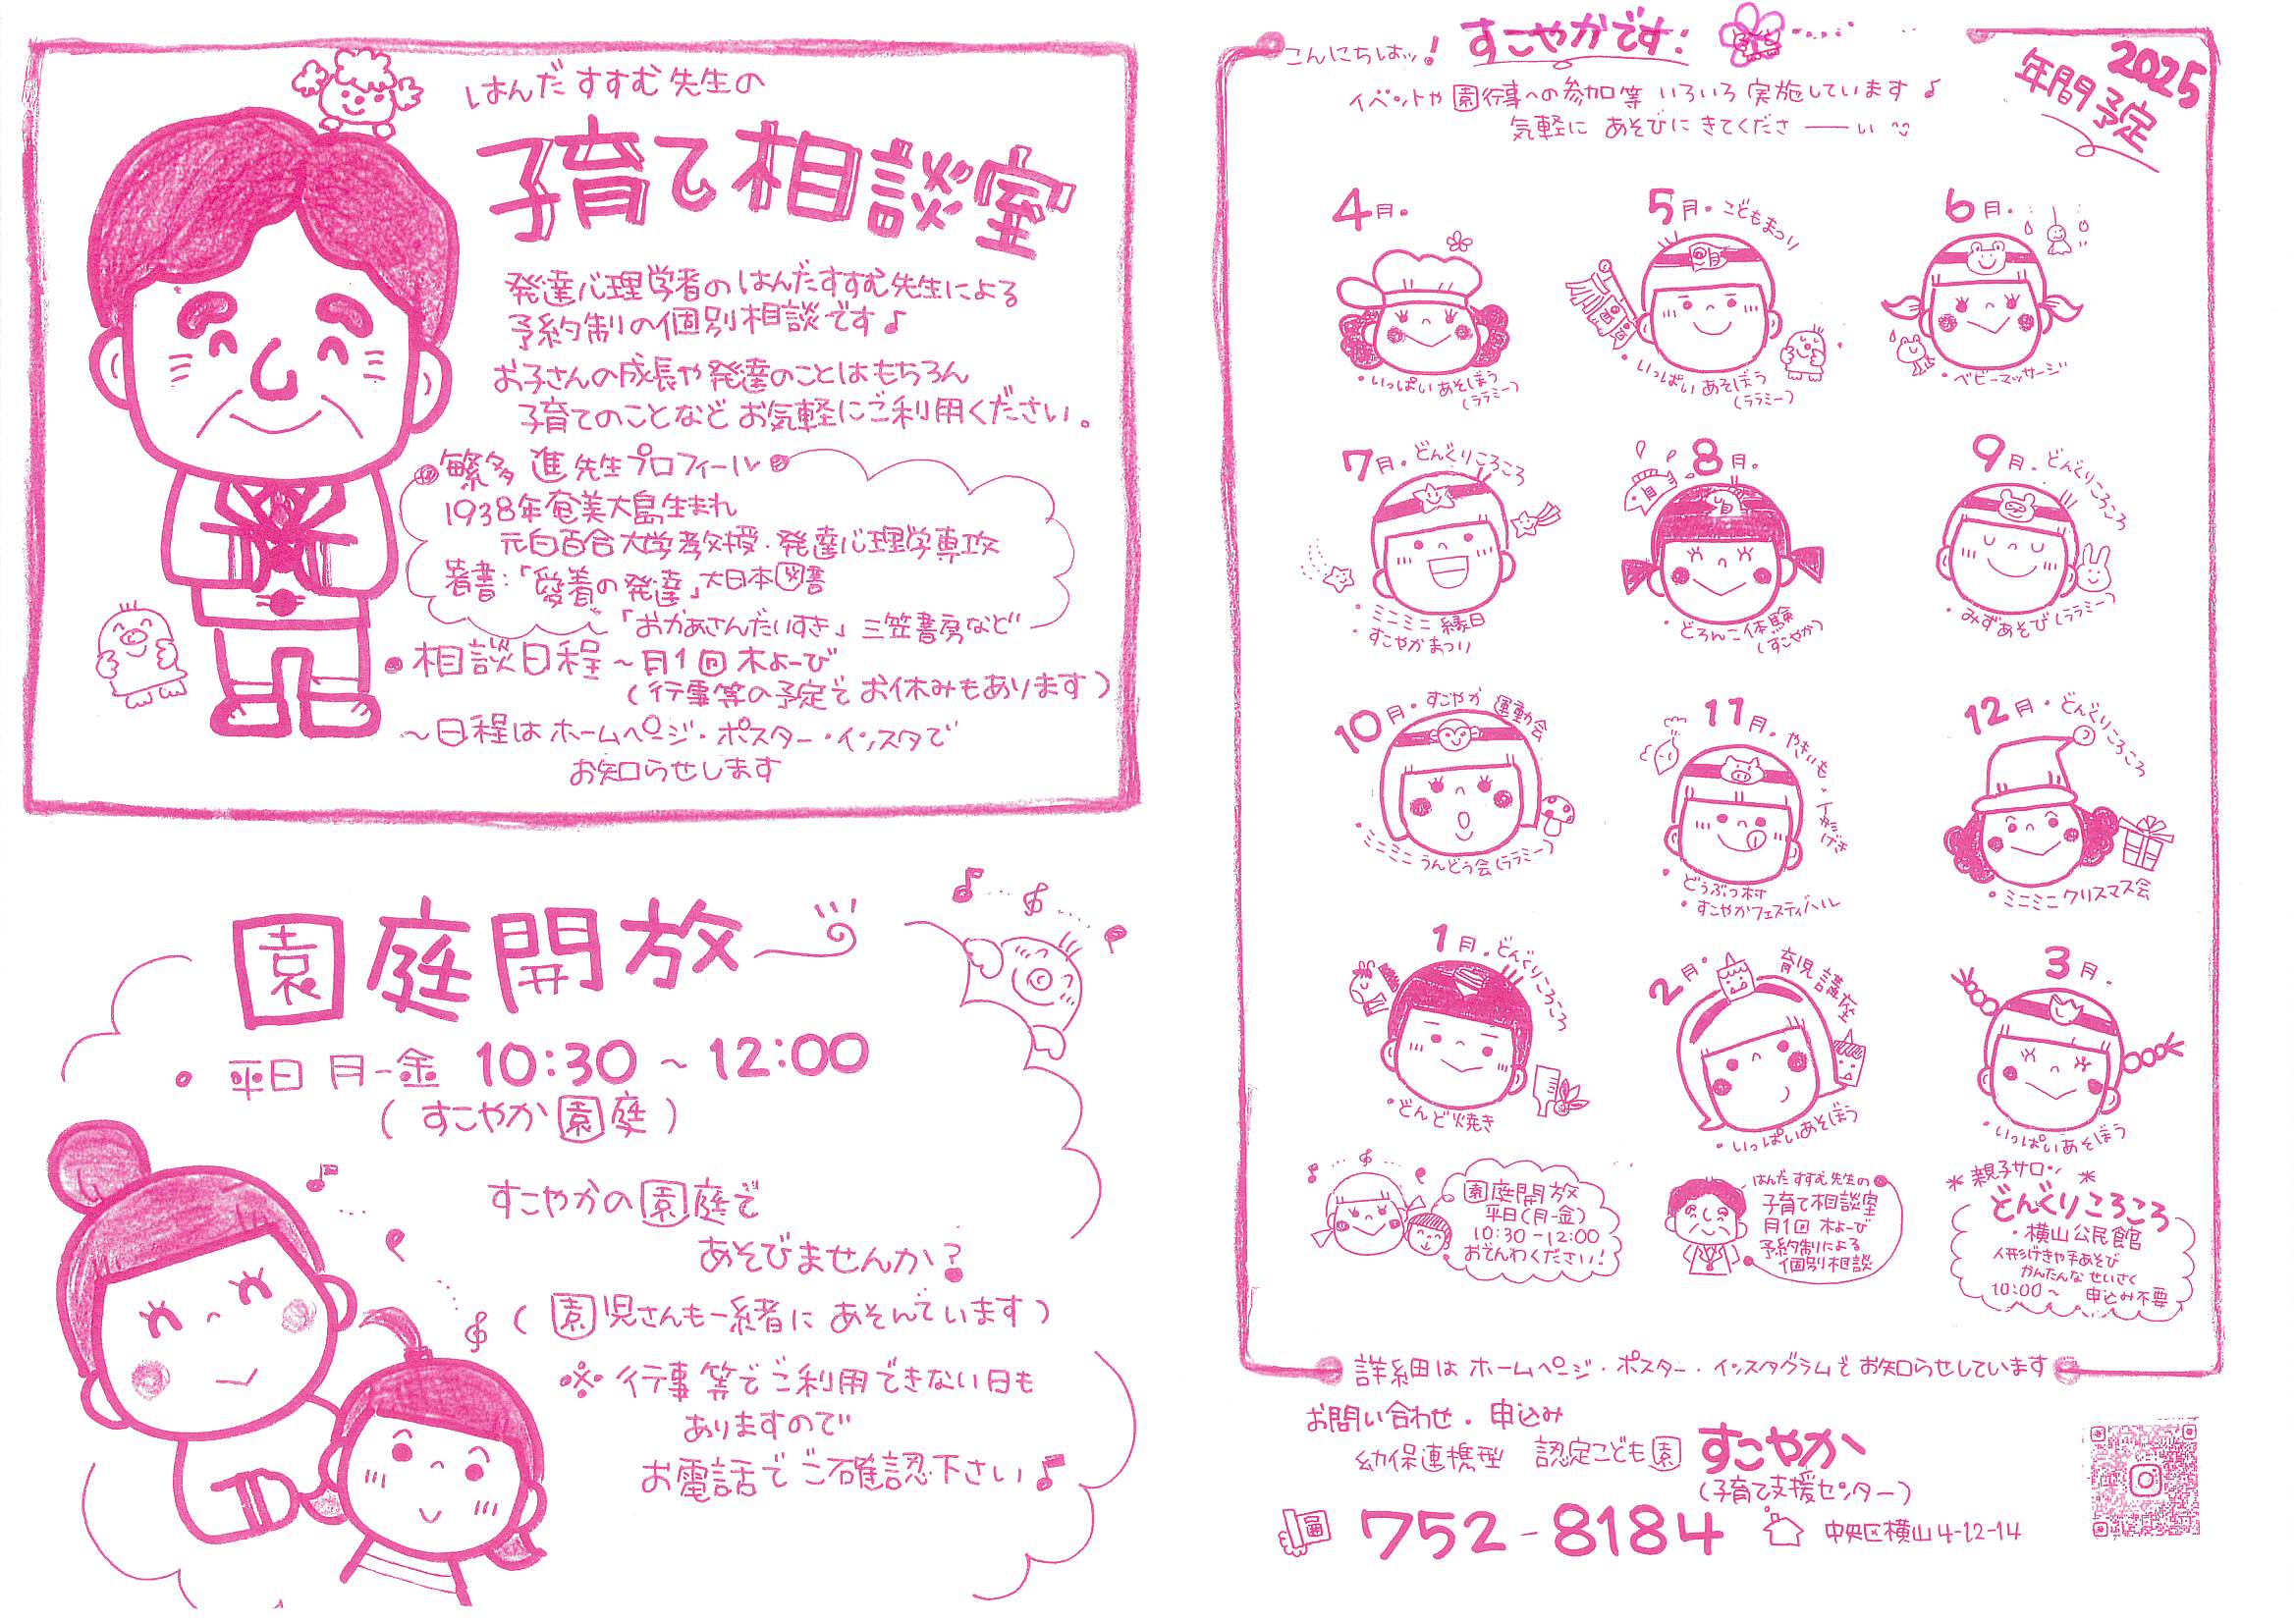 はんだすすむ先生の
子育て相談室
発達心理学者のはんだすすむ先生による
予約制の個別相談です♪
お子さんの成長や発達のことはもちろん
子育てのことなどお気軽にご利用ください。
繁多 進先生プロフィール
1938年奄美大島生まれ
元白百合大学教授・発達心理学専攻
著書:「愛着の発達」大日本図書
「おかあさんだいすき」三笠書房など
・相談日程～月1回 木よーび
(行事等の予定でお休みもあります)
～日程はホームページ・ポスター・インスタで
お知らせします
園庭開放
・平日 月-金 10:30～12:00
(すこやか園庭)
すこやかの園庭で
あそびませんか?
(園児さんも一緒にあそんでいます)
※行事等でご利用できない日も
ありますので
お電話でご確認下さい♪
こんにちはッ!
すこやかです:
イベントや園行事への参加等いろいろ実施しています♪
気軽にあそびにきてくださーい
2025
年間予定
4月・
・いっぱいあそぼう
(ララミー)
5月・こどもまつり
・いっぱいあそぼう
(ララミー)
6月・
・ベビーマッサージ
7月・どんぐりころころ
・ミニミニ縁日
・すこやかまつり
8月・
・どろんこ体験
(すこやか)
9月・どんぐりころころ
・みずあそび(ララミー)
10月・すこやか運動会
・ミニミニうんどう会(ララミー)
11月・やきいも・人形げき
・どうぶつ村
・すこやかフェスティバル
12月・どんぐりころころ
・ミニミニクリスマス会
1月・どんぐりころころ
・どんど焼き
2月・育児講座
・いっぱいあそぼう
3月・
・いっぱいあそぼう
園庭開放
平日(月-金)
10:30-12:00
おでんわください!
はんだすすむ先生の
子育て相談室
月1回 木よーび
予約制による
個別相談
＊親子サロン＊
どんぐりころころ
・横山公民館
人形げきや手あそび
かんたんなせいさく
10:00～ 申込み不要
詳細はホームページ・ポスター・インスタグラムでお知らせしています
お問い合わせ・申込み
幼保連携型 認定こども園 すこやか
(子育て支援センター)
752-8184 中央区横山4-12-14